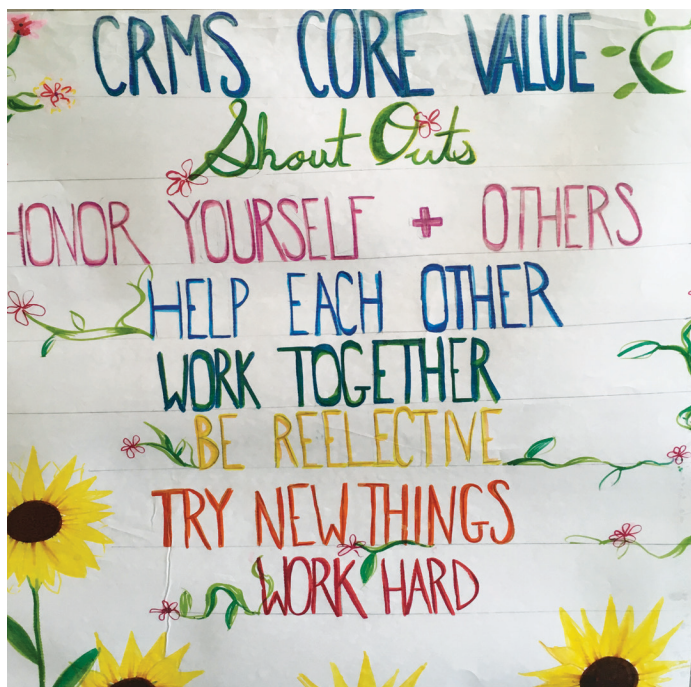 CRMS CORE VALUE
Shout Outs
HONOR YOURSELF + OTHERS
HELP EACH OTHER
WORK TOGETHER
BE REELECTIVE
TRY NEW THINGS
WORK HARD